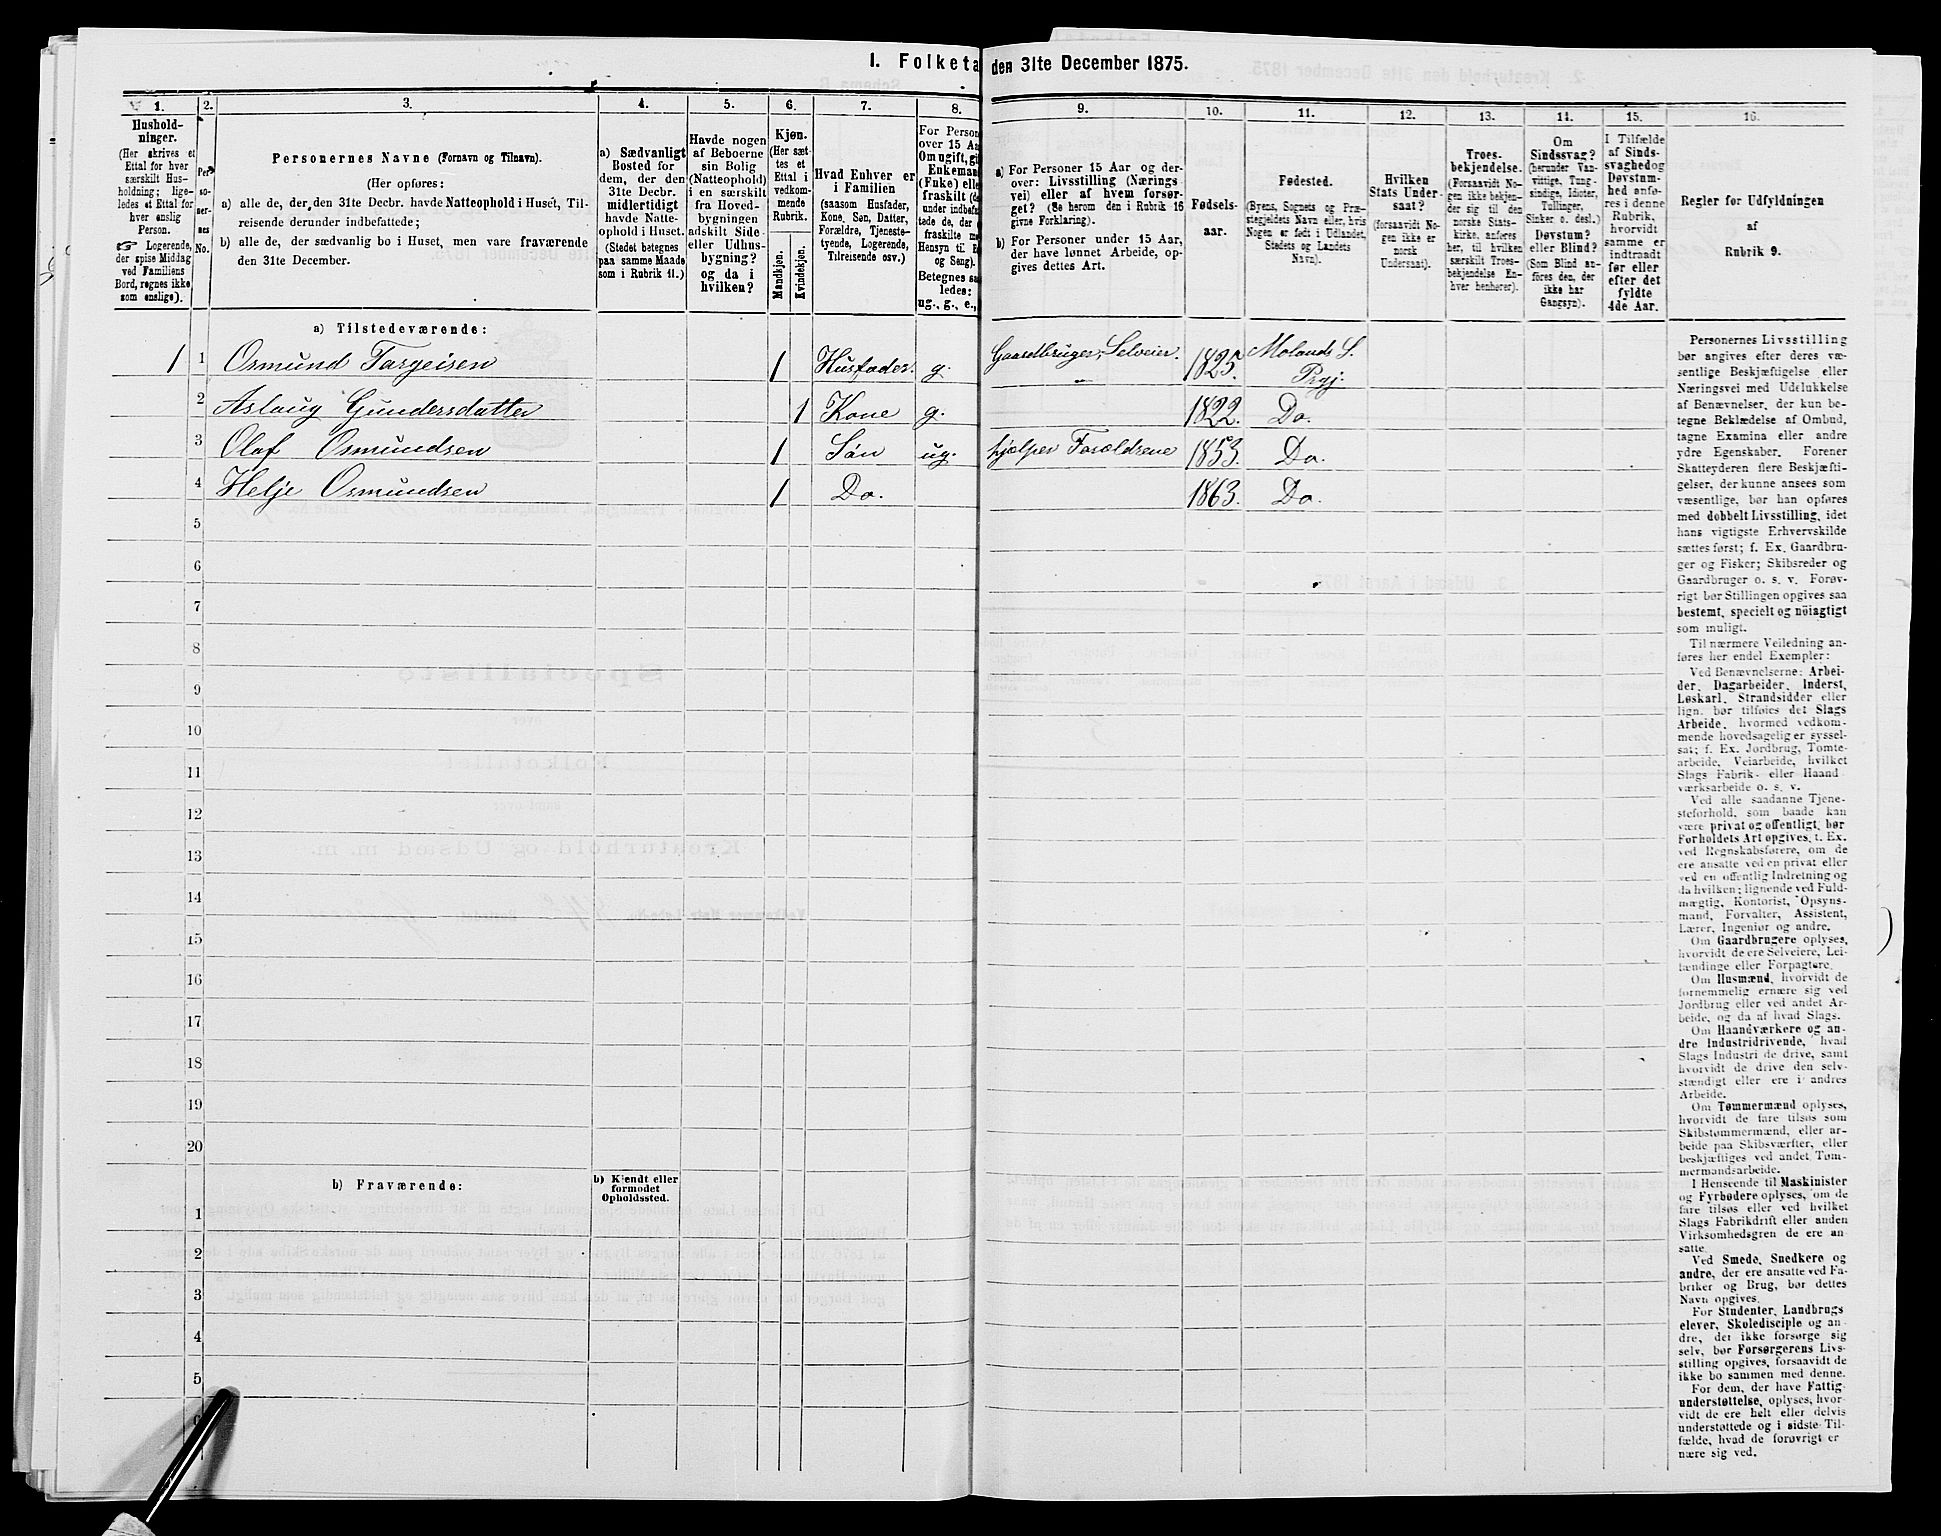 I. Folketa den 31te December 1875.
1. 2. 3. 4. 5. 6. 7. 8. 9. 10. 11. 12. 13. 14. 15. 16.
Hushold-
ninger.
(Her skrives et
Ettal for hver
særskilt Hus-
holdning; lige-
ledes et Ettal for
hver enslig
Person.
☞ Logerende,
der spise Middag
ved Familiens
Bord, regnes ikke
som enslige).
Per-
so-
ner-
nes
No.
Personernes Navne (Fornavn og Tilnavn).
(Her opføres:
a) alle de, der den 31te Decbr. havde Natteophold i Huset, Til-
reisende derunder indbefattede;
b) alle de, der sædvanlig bo i Huset, men vare fraværende
den 31te December.
a) Sædvanligt
Bosted for
dem, der den
31te Decbr.
midlertidigt
havde Natte-
ophold i Huset.
(Stedet betegnes
paa samme Maade
som i Rubrik 11.)
Havde nogen
af Beboerne
sin Bolig
(Natteophold)
i en særskilt
fra Hoved-
bygningen
adskilt Side-
eller Udhus-
bygning?
og da i
hvilken?
Kjøn.
(Her sæt-
tes et
Ettal i
vedkom-
mende
Rubrik.
Mandkjøn.
Kvindekjøn.
Hvad Enhver er
i Familien
(saasom Husfader,
Kone, Søn, Datter,
Forældre, Tjeneste-
tyende, Logerende,
Tilreisende osv.)
For Person
over 15 Aa
Om ugift, gi
Enkemand
(Enke) elle
fraskilt (de
under indbefat
tede de, der e
fraskilte m
Hensyn til B
og Seng).
Betegnes saa
ledes:
ug., g., e.,
a) For Personer 15 Aar og der-
over: Livsstilling (Nærings-
vei) eller af hvem forsør-
get? (Se herom den i Rubrik 16
givne Forklaring).
b) For Personer under 15 Aar,
der have lønnet Arbeide, op-
gives dettes Art.
Fødsels-
aar.
Fødested.
(Byens, Sognets og Præ-
stegjeldets Navn eller, hvis
Nogen er født i Udlandet,
Stedets og Landets
Navn).
Hvilken
Stats Under-
saat?
(forsaavidt No-
gen ikke er
norsk
Undersaat).
Troes-
bekjendelse.
(Forsaavidt No-
gen ikke bekjen-
der sig til den
norske Stats-
kirke, anføres
her, til hvilken
særskilt Troes-
bekjendelse En-
hver henhører).
Om
Sindssvag?
(herunder Van-
vittige, Tung-
sindige, Idioter,
Tullinger,
Sinker o. desl.)
Døvstum?
eller Blind?
(Som Blind an-
føres den, der
ikke har
Gangsyn).
I Tilfælde
af Sinds-
svaghed og
Døvstum-
hed anfø-
res i denne
Rubrik,
hvorvidt
samme er
indtraadt
før eller
efter det
fyldte
4de Aar.
Regler for Udfyldningen
af
Rubrik 9.
a) Tilstedeværende:
1 1 Osmund Targeisen 1 Husfader. g. Gaardbruger, Selveier. 1825. Molands S.
Prgj.
2 Aslaug Gundersdatter 1 Kone g. 1822. Do.
3 Olaf Osmundsen 1 Søn ug. hjælper Forældrene 1853. Do.
4 Helje Osmundsen 1 Do. 1863. Do.
5
6
7
8
9
10
11
12
13
14
15
16
17
18
19
20
b) Fraværende:
b) Kjendt eller
formodet
Opholdssted.
1
2
3
4
5
6
Personernes Livsstilling
bør angives efter deres væ-
sentlige Beskjæftigelse eller
Næringsvei med Udelukkelse
af Benævnelser, der kun be-
tegne Beklædelse af Ombud,
tagne Examina eller andre
ydre Egenskaber. Forener
Skatteyderen flere Beskjæfti-
gelser, der kunne ansees som
væsentlige, bør han opføres
med dobbelt Livsstilling, idet
hans vigtigste Erhvervskilde
sættes først; f. Ex. Gaardbru-
ger og Fisker; Skibsreder og
Gaardbruger o. s. v. Forøv-
rigt bør Stillingen opgives saa
bestemt, specielt og nöiagtigt
som muligt.
Til nærmere Veiledning an-
føres her endel Exempler:
Ved Benævnelserne: Arbei-
der, Dagarbeider, Inderst,
Løskarl, Strandsidder eller
lign. bør tilføies det Slags
Arbeide, hvormed vedkom-
mende hovedsagelig er syssel-
sat; f. Ex. Jordbrug, Tomte-
arbeide, Veiarbeide, hvilket
Slags Fabrik- eller Haand-
værksarbeide o. s. v.
Ved alle saadanne Tjene-
steforhold, som baade kan
være privat og offentligt, bør
Forholdets Art opgives, f. Ex.
ved Regnskabsførere, om de
ere ansatte ved en privat eller
ved en offentlig Indretning og
da hvilken; lignende ved Fuld-
mægtig, Kontorist, Opsyns-
mand, Forvalter, Assistent,
Lærer, Ingeniør og andre.
Om Gaardbrugere oplyses,
hvorvidt de ere Selveiere, Lei-
lændinge eller Forpagtere.
Om Husmænd, hvorvidt de
fornemmelig ernære sig ved
Jordbrug eller ved andet Ar-
beide, og da af hvad Slags.
Om Haandværkere og an-
dre Industridrivende, hvad
Slags Industri de drive, samt
hvorvidt de drive den selv-
stændigt eller ere i andres
Arbeide.
Om Tømmermænd oplyses,
hvorvidt de fare tilsøs som
Skibstømmermænd, eller ar-
beide paa Skibsværfter, eller
beskjæftiges ved andet Tøm-
mermandsarbeide.
I Henseende til Maskinister
og Fyrbødere oplyses, om de
fare tilsøs eller ved hvilket
Slags Fabrikdrift eller anden
Virksomhedsgren de ere an-
satte.
Ved Smede, Snedkere og
andre, der ere ansatte ved Fa-
briker og Brug, bør dettes
Navn opgives.
For Studenter, Landbrugs-
elever, Skoledisciple og an-
dre, der ikke forsørge sig
selv, bør Forsørgerens Livs-
stilling opgives, forsaavidt de
ikke bo sammen med denne.
For dem, der have Fattig-
understøttelse, oplyses, hvor-
vidt de ere helt eller delvis
understøttede og i sidste Til-
fælde, hvad de forøvrigt er-
nære sig ved.